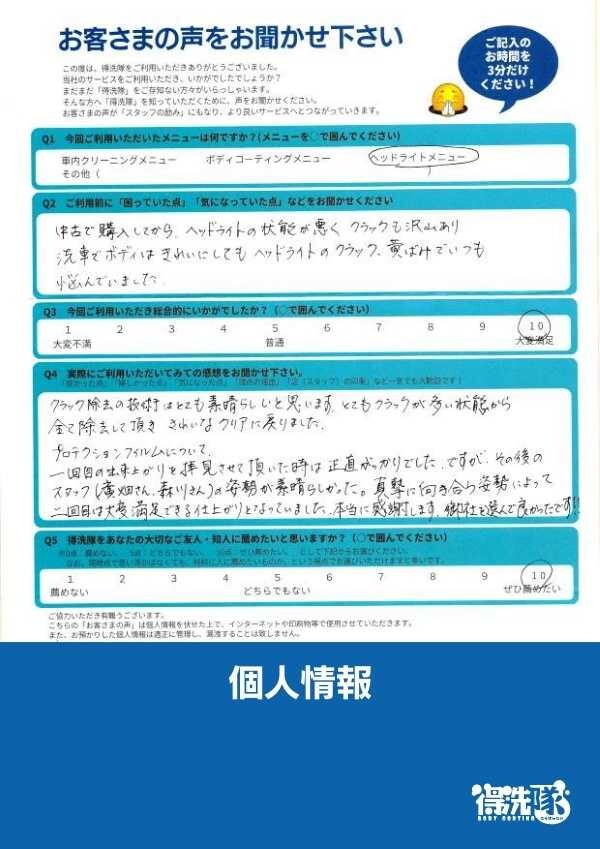 お客さまの声をお聞かせ下さい
ご記入の
お時間を
3分だけ
ください！
この度は、得洗隊をご利用いただきありがとうございました。
当社のサービスをご利用いただき、いかがでしたでしょうか？
まだまだ「得洗隊」をご存知ない方々がいらっしゃいます。
そんな方へ「得洗隊」を知っていただくために、声をお聞かせください。
お客さまの声が「スタッフの励み」にもなり、より良いサービスへとつながっていきます。
Q1 今回ご利用いただいたメニューは何ですか？(メニューを○で囲んでください)
車内クリーニングメニュー ボディコーティングメニュー ヘッドライトメニュー
その他（ ）
Q2 ご利用前に「困っていた点」「気になっていた点」などをお聞かせください
中古で購入してから、ヘッドライトの状態が悪く クラックも沢山あり
洗車でボディはきれいにしてもヘッドライトのクラック、黄ばみでいつも
悩んでいました。
Q3 今回ご利用いただき総合的にいかがでしたか？（○で囲んでください）
1 2 3 4 5 6 7 8 9 10
大変不満 普通 大変満足
Q4 実際にご利用いただいてみての感想をお聞かせ下さい。
「良かった点」「嬉しかった点」「気になった点」「満点の理由」「店（スタッフ）の印象」など一言でも大歓迎です！
クラック除去の技術はとても素晴らしいと思います。とてもクラックが多い状態から
全て除去して頂き きれいなクリアに戻りました。
プロテクションフィルムについて、
一回目の出来上がりを拝見させて頂いた時は正直がっかりでした。ですが、その後の
スタッフ(廣畑さん、森川さん)の姿勢が素晴らしかった。真摯に向き合う姿勢によって
二回目は大変満足できる仕上がりとなっていました。本当に感謝します。御社を選んで良かったです!!
Q5 得洗隊をあなたの大切なご友人・知人に薦めたいと思いますか？（○で囲んでください）
1 2 3 4 5 6 7 8 9 10
薦めない どちらでもない ぜひ薦めたい
ご協力いただき有難うございます。
こちらの「お客さまの声」は個人情報を伏せた上で、インターネットや印刷物等で使用させていただきます。
また、お預かりした個人情報は適正に管理し、漏洩することは致しません。
個人情報
得洗隊
BODY COATING